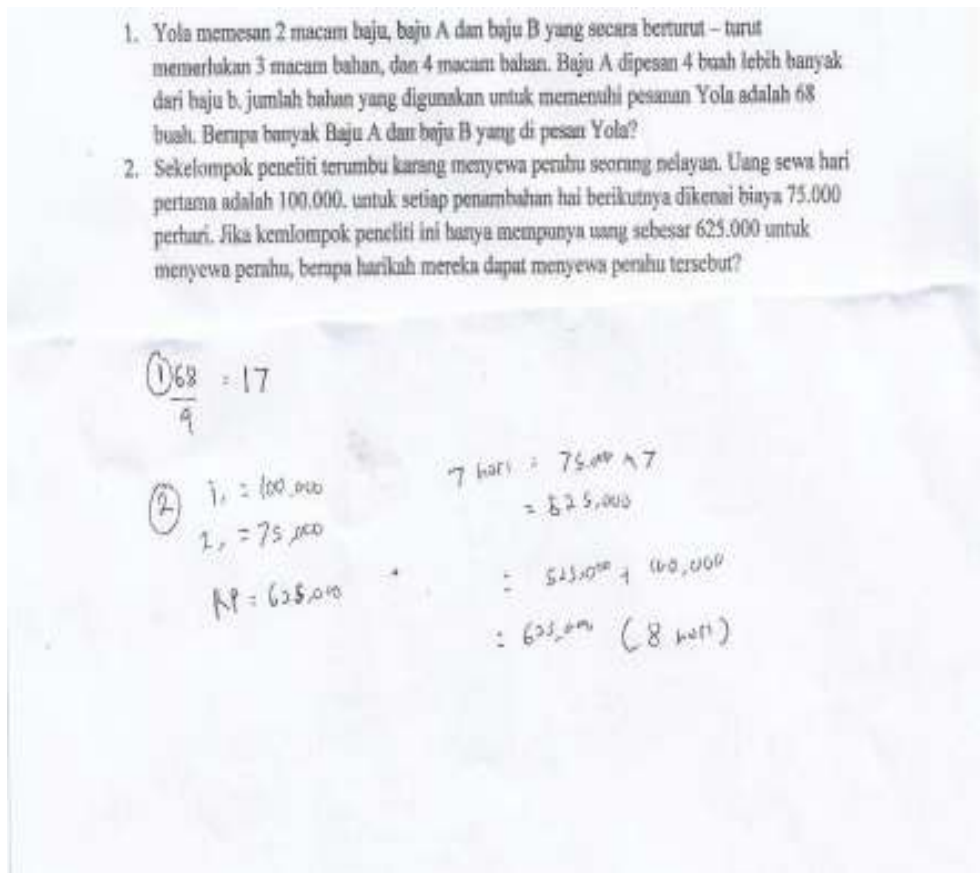 1. Yola memesan 2 macam baju, baju A dan baju B yang secara berturut – turut
memerlukan 3 macam bahan, dan 4 macam bahan. Baju A dipesan 4 buah lebih banyak
dari baju b, jumlah bahan yang digunakan untuk memenuhi pesanan Yola adalah 68
buah. Berapa banyak Baju A dan baju B yang di pesan Yola?
2. Sekelompok peneliti terumbu karang menyewa perahu seorang nelayan. Uang sewa hari
pertama adalah 100.000. untuk setiap penambahan hai berikutnya dikenai biaya 75.000
perhari. Jika kemlompok peneliti ini hanya mempunya uang sebesar 625.000 untuk
menyewa perahu, berapa harikah mereka dapat menyewa perahu tersebut?
① 68 = 17
4
② 1, = 100.000
2, = 75,000
RP = 625,000
7 hari = 75.000 x 7
= 525,000
= 525,000 + 100,000
= 625,000 (8 hari)